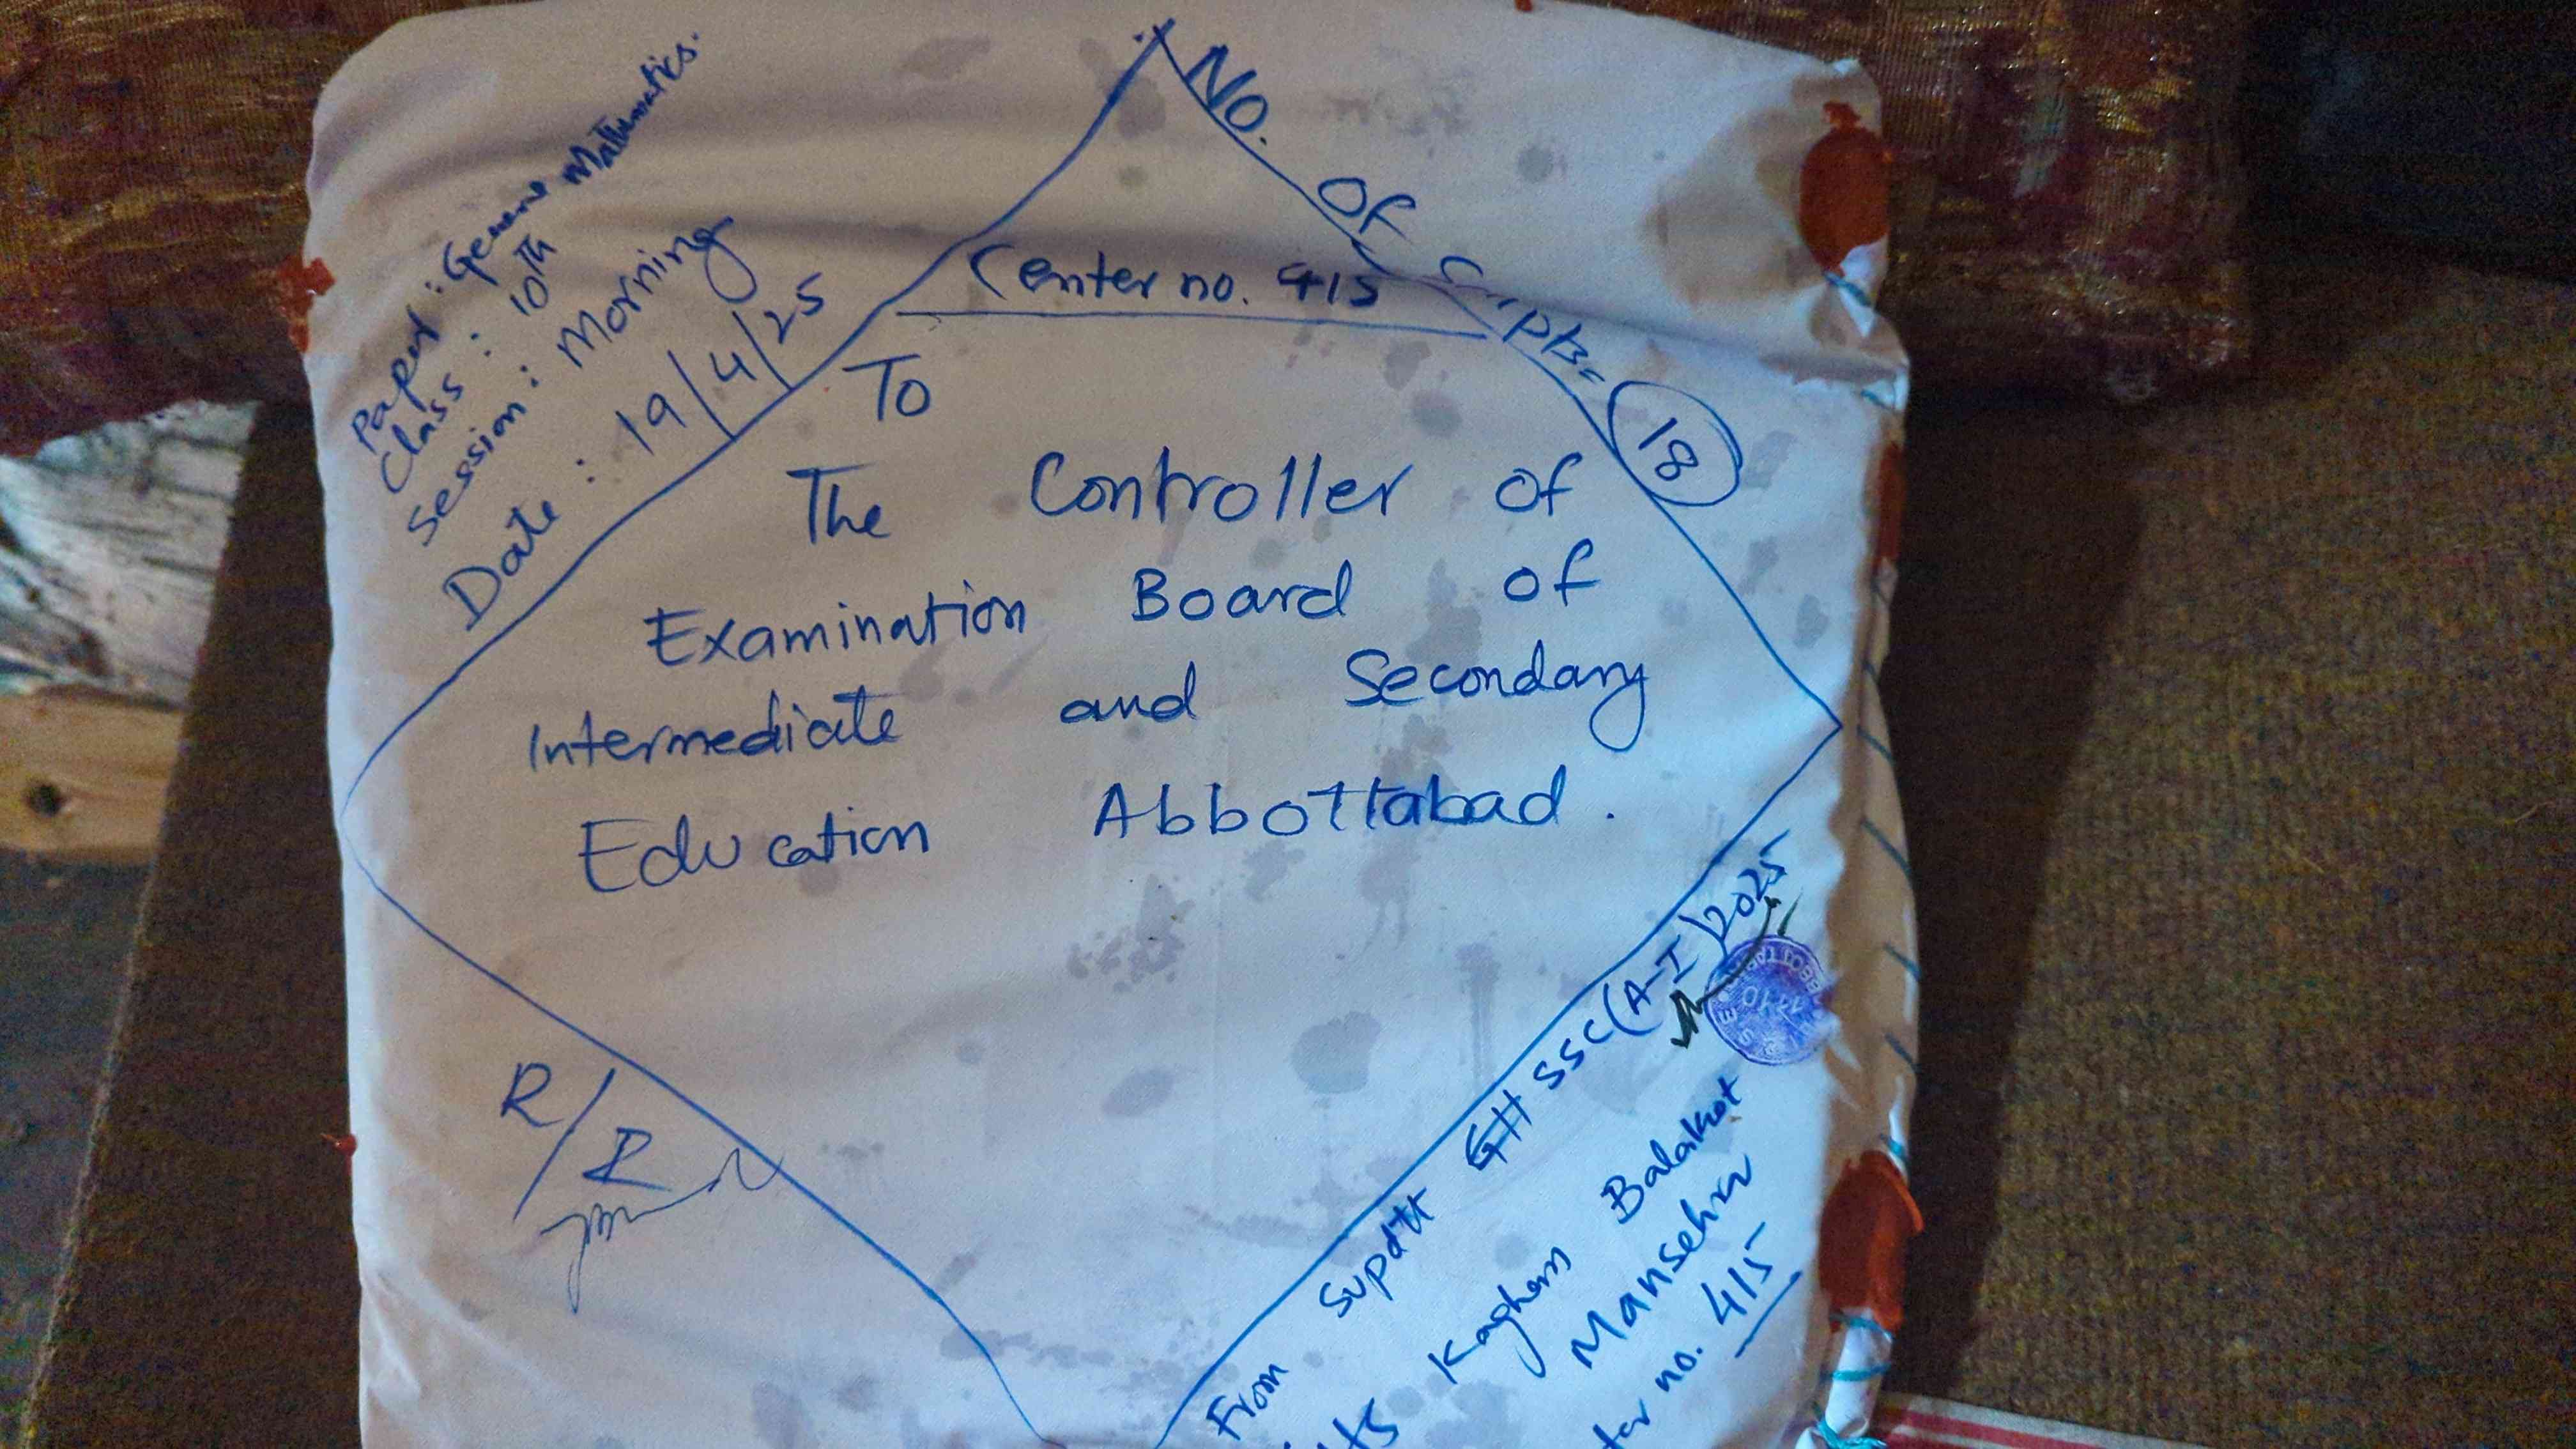 Paper : General Mathematics.
Class : 10th
Session : Morning
Date : 19/4/25
No. of Scripts = 18
Center no. 415
To
The Controller of
Examination Board of
Intermediate and Secondary
Education Abbottabad.
R/R
From Supdtt GH SSC (A-I) 2025
Kaghan Balakot
Mansehra
no. 415